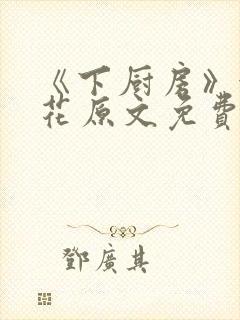 《下厨房》
花原文免費
鄧廣其